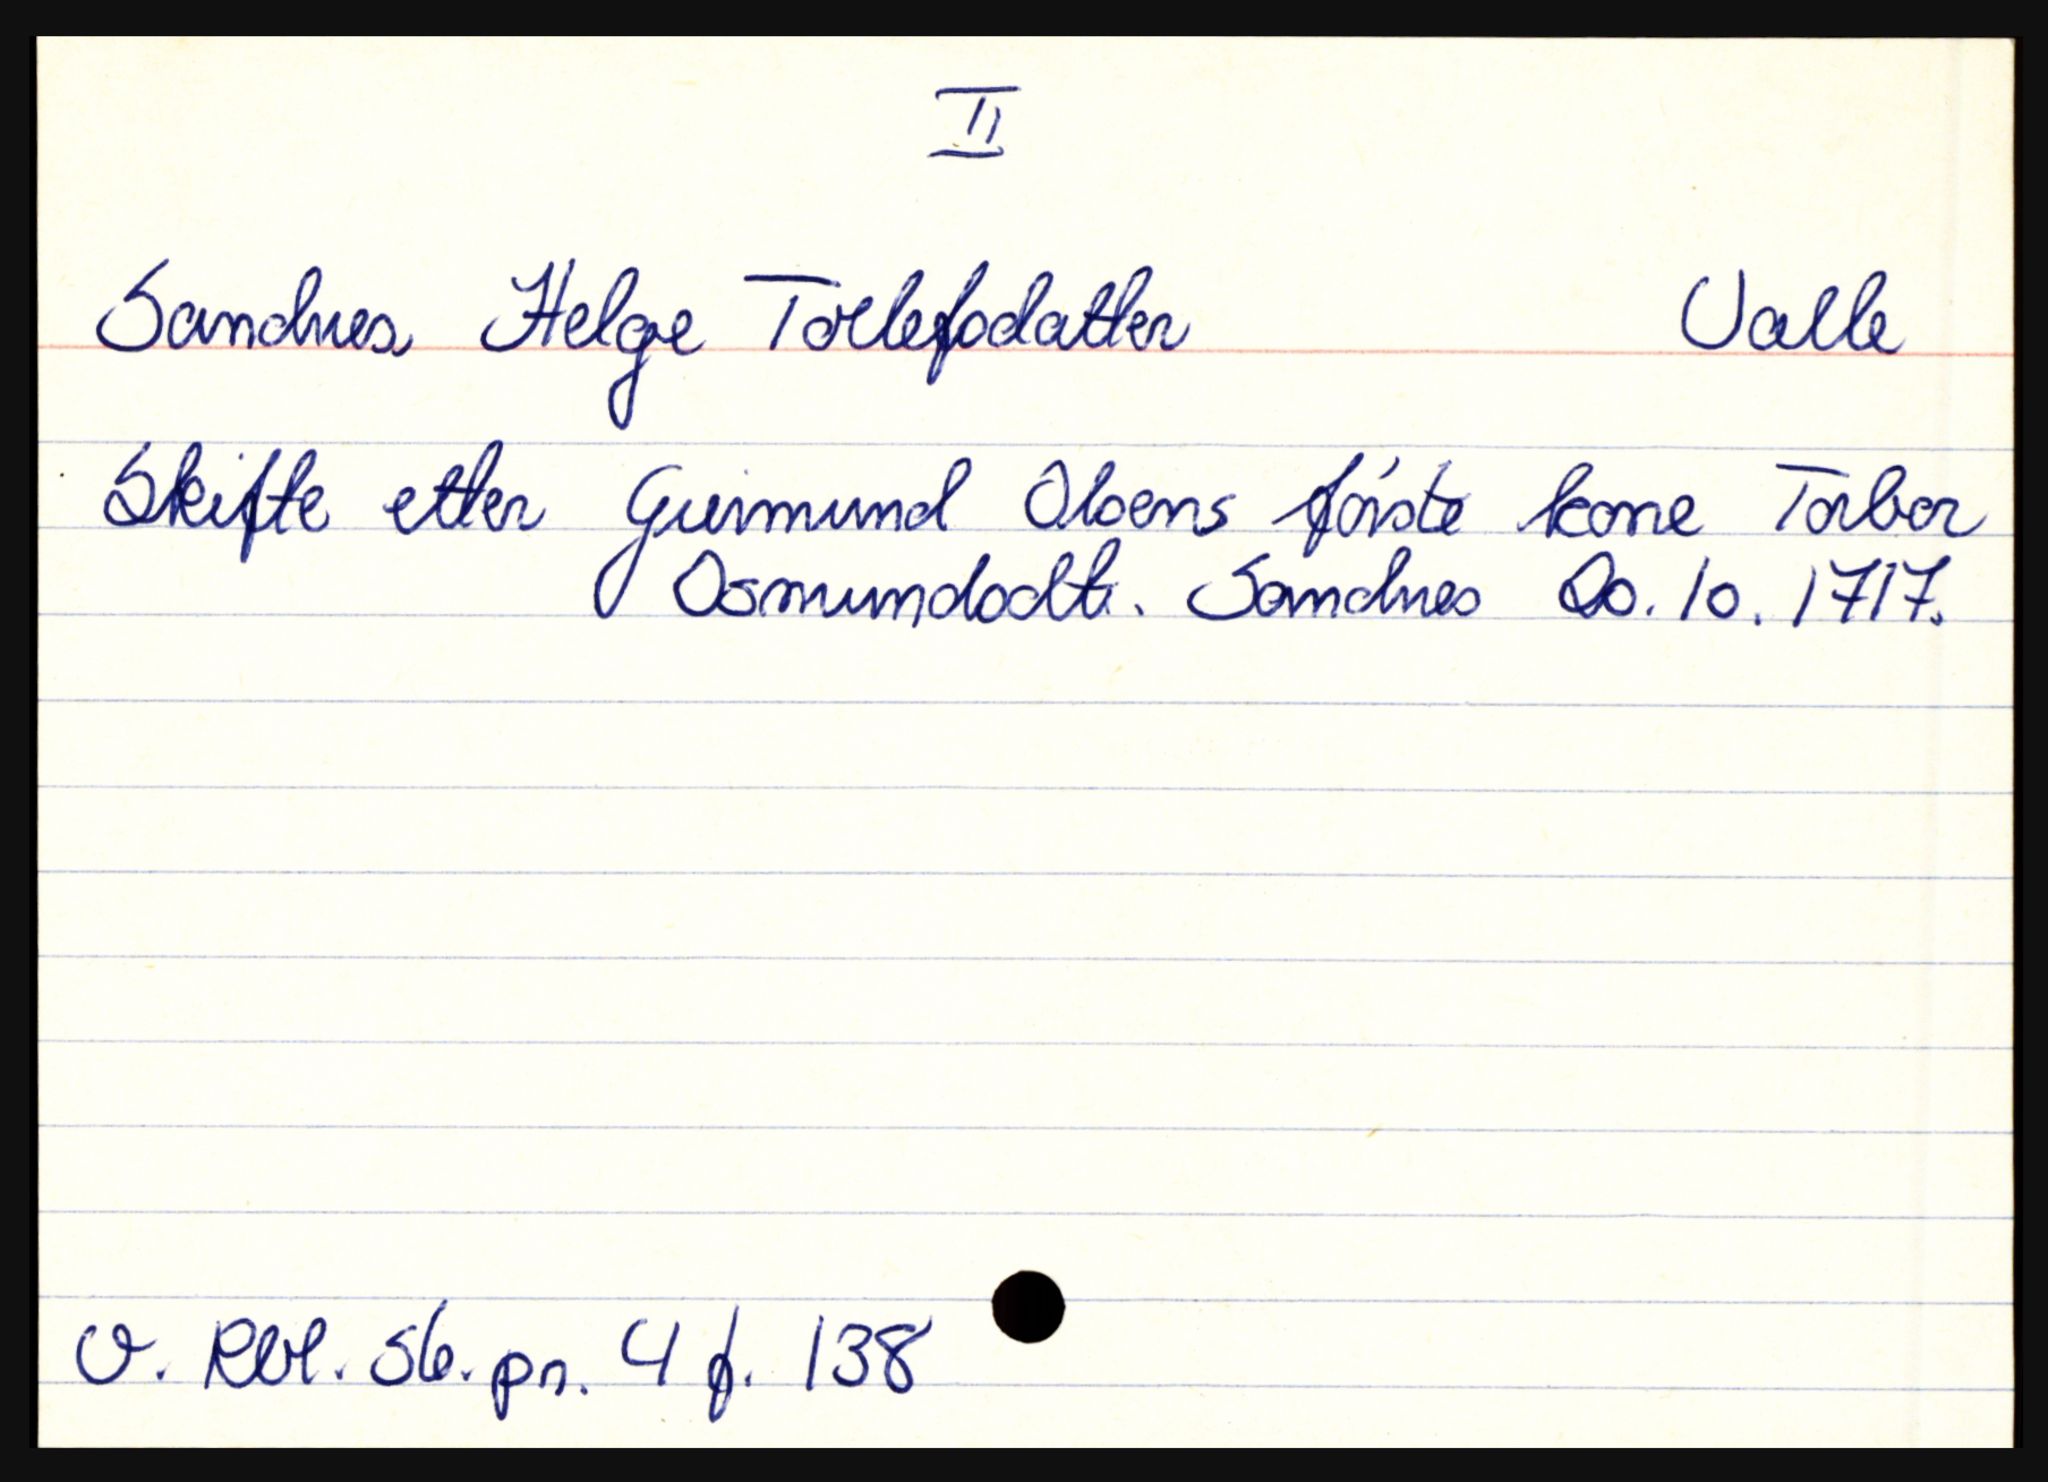 II
Sandnes, Helge Tollefsdatter Valle
Skifte etter Guimund Olsens første kone Torbor
Osmundsdtr. Sandnes 20.10.1717.
V. Rbl. sk. pr. 4 f. 138